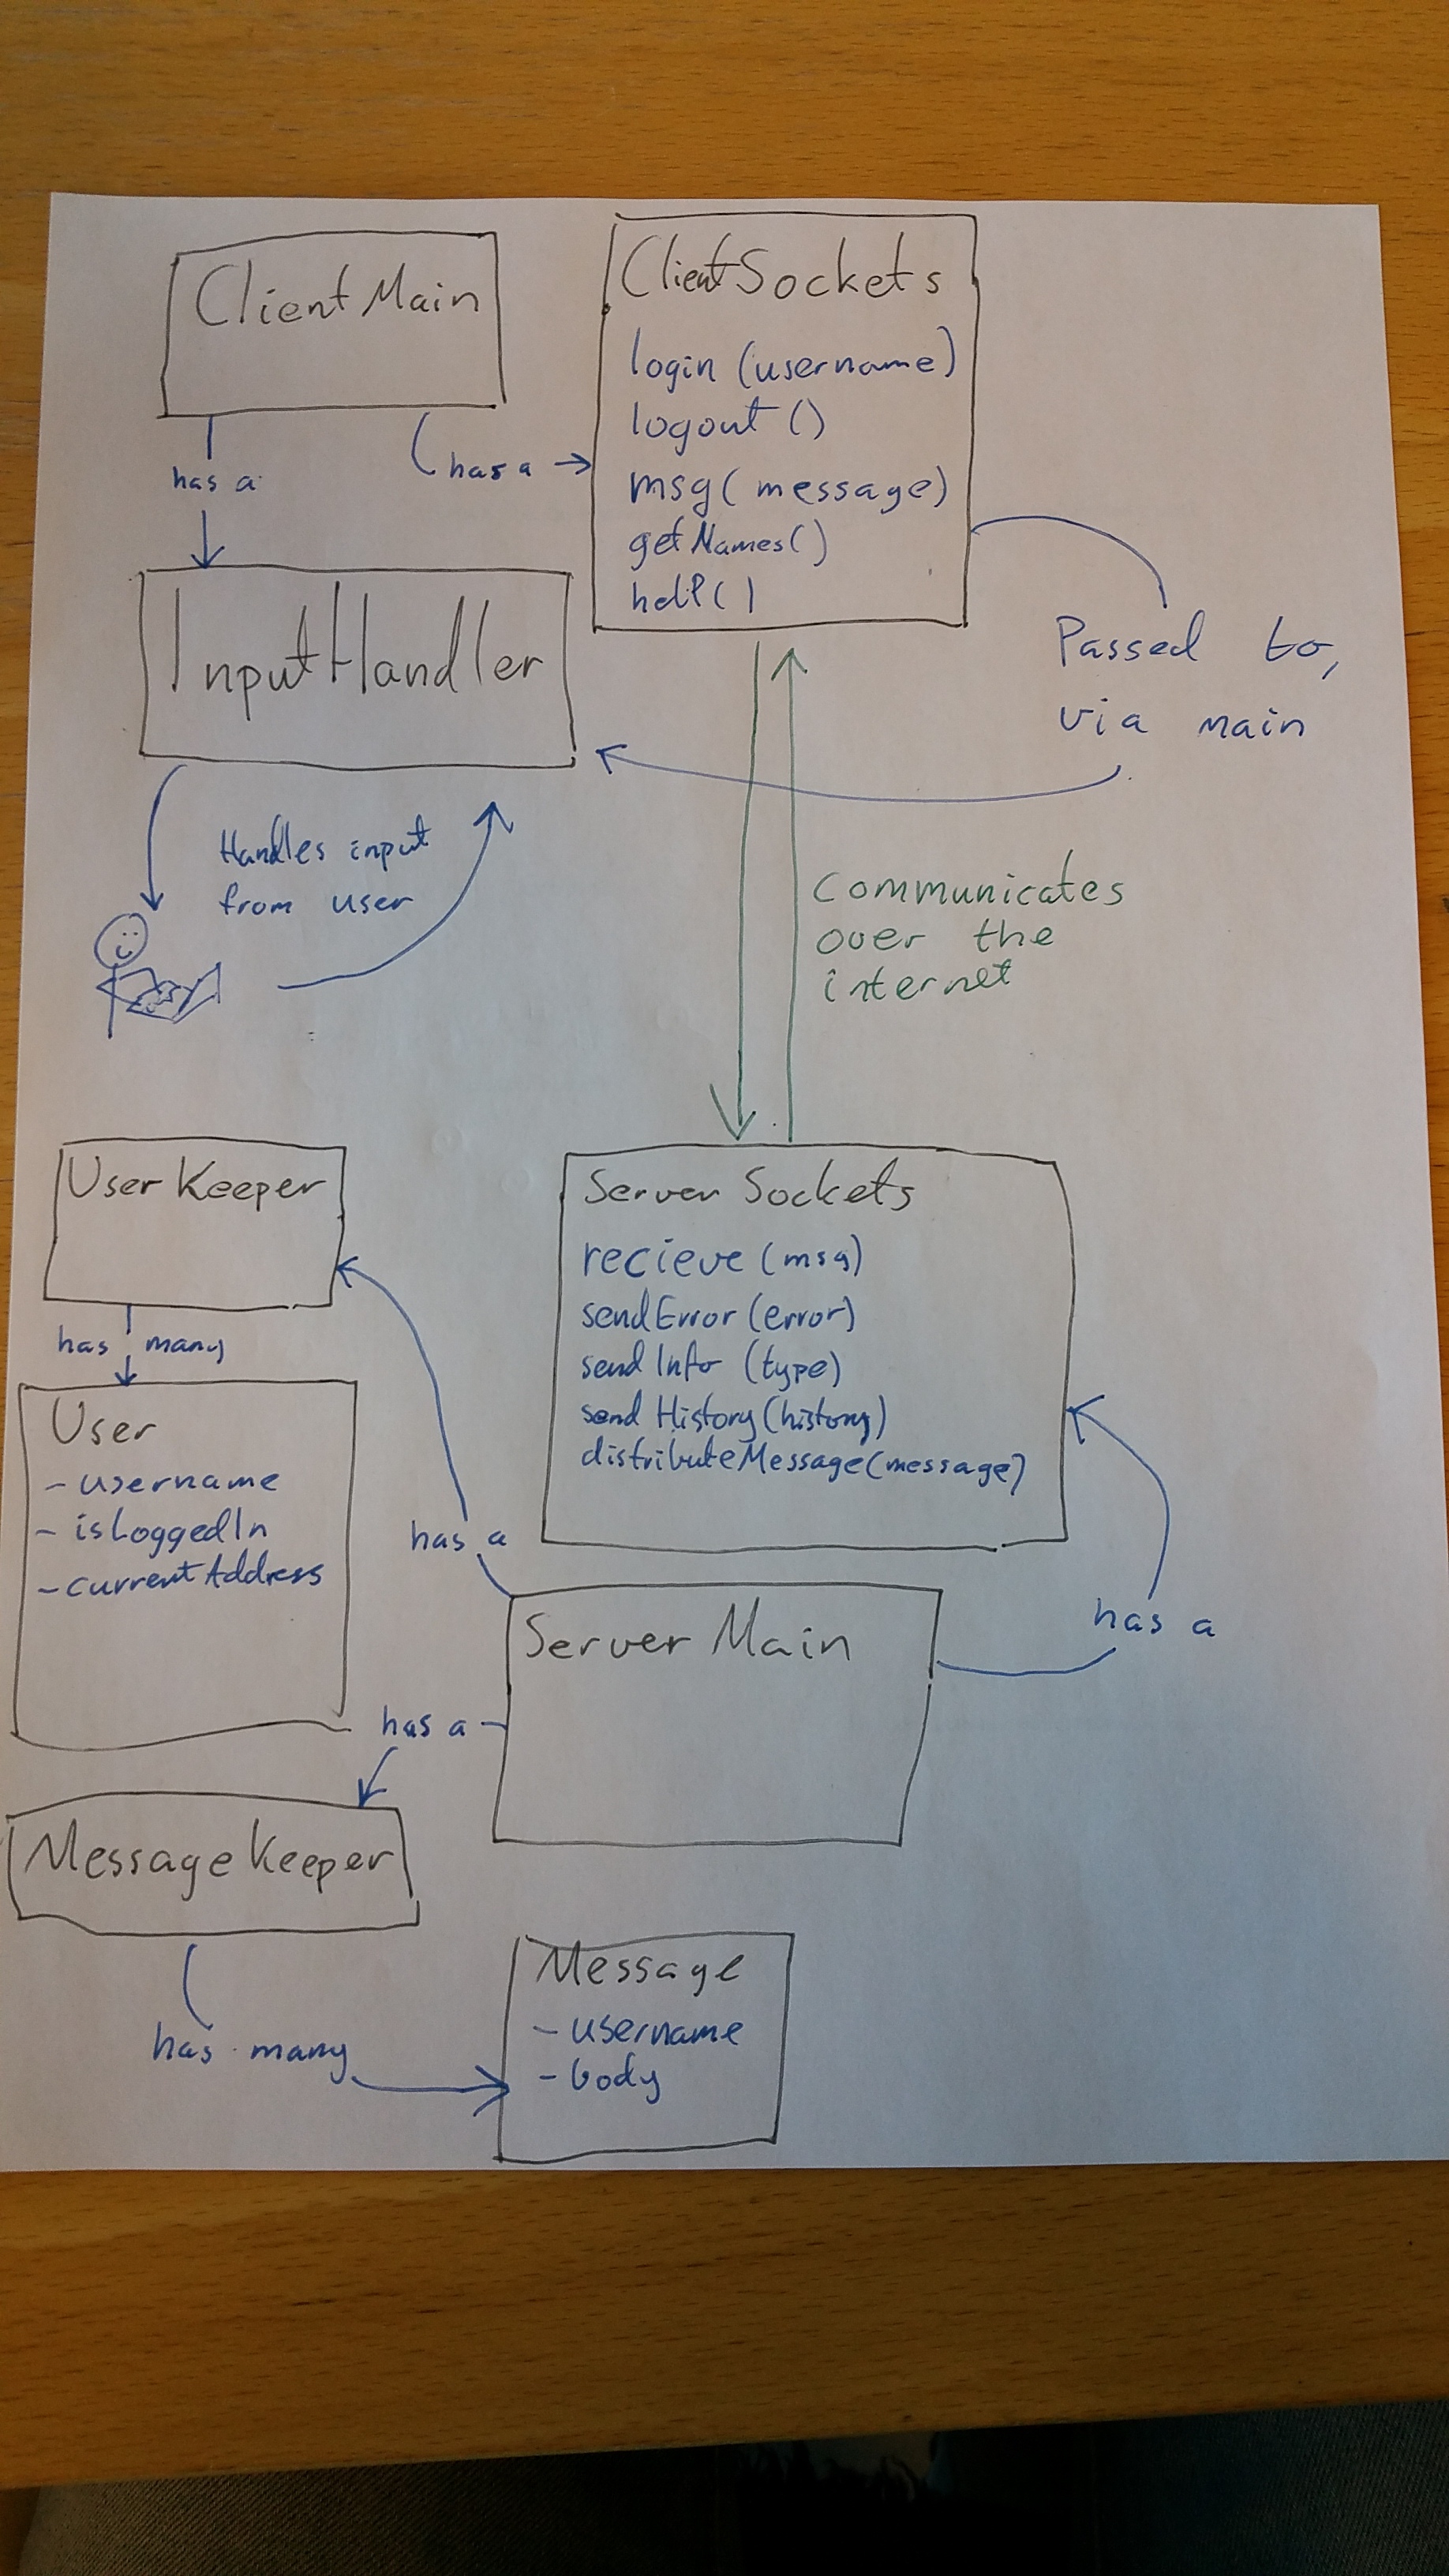 ClientMain
has a
has a
ClientSockets
login (username)
logout ()
msg( message)
getNames()
help()
Passed to,
via main
InputHandler
Handles input
from user
Communicates
over the
internet
User Keeper
has many
User
- username
- isLoggedIn
- currentAddress
Server Sockets
recieve (msg)
sendError (error)
send Info (type)
send History (history)
distributeMessage(message)
has a
has a
Server Main
has a
Message Keeper
has many
Message
- username
- body